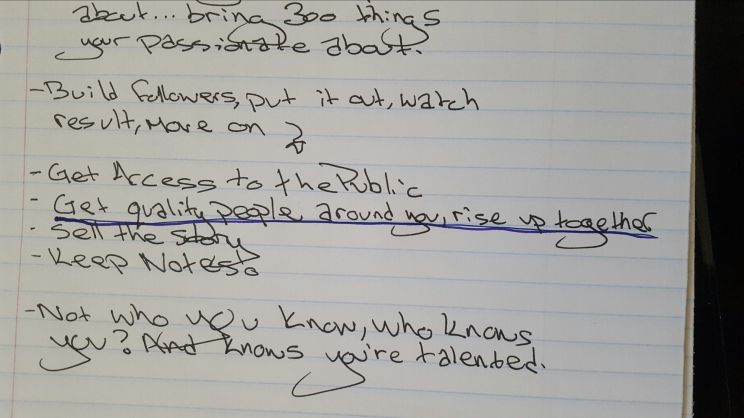 about... bring 300 things
your passionate about.
- Build followers, put it out, watch
result, move on
- Get Access to the Public
- Get quality people around you, rise up together
- Sell the story
- Keep Notes.
- Not who you know, who knows
you? And knows you're talented.